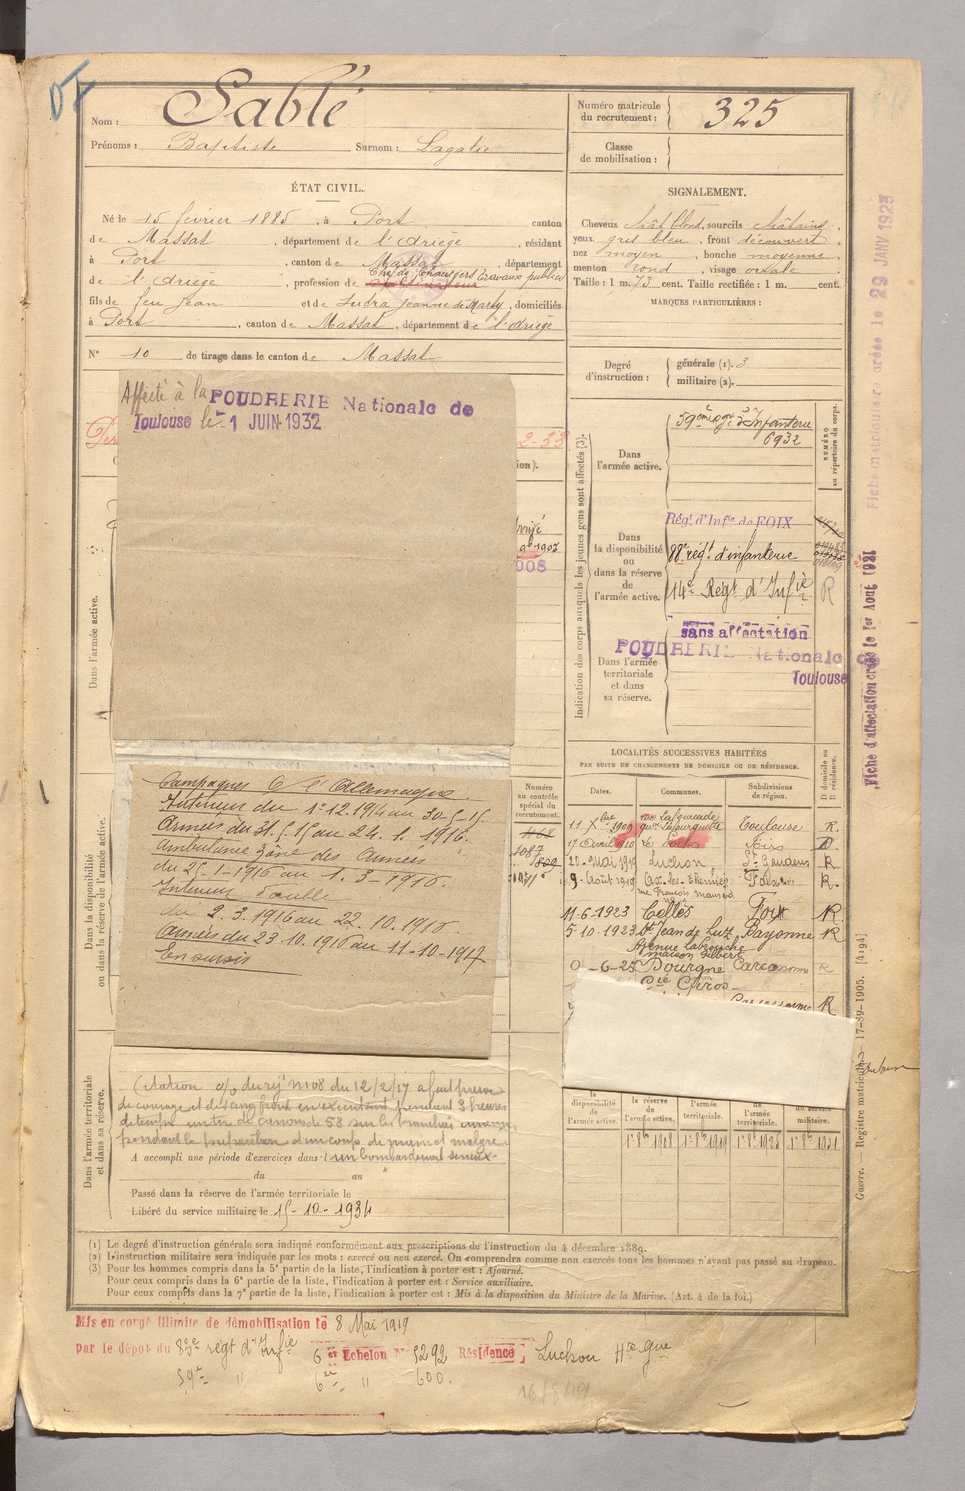 Nom : Sablé
Prénoms : Baptiste Surnom : Lagalie
Numéro matricule du recrutement : 325
Classe de mobilisation :
ÉTAT CIVIL.
Né le 15 février 1885, à Port, canton
de Massat, département de l'Ariège, résidant
à Port, canton de Massat, département
de l'Ariège, profession de Travaux publics
fils de feu Jean et de Jeanne de Marty, domiciliés
à Port, canton de Massat, département de l'Ariège
N° 10 de tirage dans le canton de Massat
SIGNALEMENT.
Cheveux chât blond, sourcils châtains
yeux gris bleu, front découvert
nez moyen, bouche moyenne
menton rond, visage ovale
Taille : 1 m. 73 cent. Taille rectifiée : 1 m. cent.
MARQUES PARTICULIÈRES :
Degré d'instruction : générale (1). 3
militaire (2).
Affecté à la POUDRERIE Nationale de
Toulouse le 1 JUIN 1932
2-33
ion).
908
Dans l'armée active.
Indication des corps auxquels les jeunes gens sont affectés (3).
Dans l'armée active.
59ème Rgt d'Infanterie
6932
NUMÉRO au répertoire du corps.
Dans la disponibilité ou dans la réserve de l'armée active.
Régt d'Infie de FOIX
88e régt d'infanterie
14e Régt d'Infie
R
Dans l'armée territoriale et dans sa réserve.
sans affectation
POUDRERIE Nationale de
Toulouse
Fiche matriculaire créée le 29 JANV 1925
Fiche d'affectation créée le 1er Aout 1931
Dans la disponibilité ou dans la réserve de l'armée active.
Campagnes C l'Allemagne.
Intérieur du 1-12.1914 au 30-5-15
Armées du 31.5.15 au 24.1.1916.
Ambulance zône des Armées
du 25-1-1916 au 1.3-1916.
Intérieur
du 2.3.1916 au 22.10.1916
Armées du 23.10.1916 au 11-10-1917
En sursis
Numéro au contrôle spécial du recrutement.
1087
LOCALITÉS SUCCESSIVES HABITÉES
PAR SUITE DE CHANGEMENTS DE DOMICILE OU DE RÉSIDENCE.
Dates. Communes. Subdivisions de région. D domicile ou R résidence.
11 Xbre 1909 Toulouse R.
17 avril 1910 Le Port Foix D
20 mai 1919 Luchon St Gaudens R
9 Août 1919 Ax-les-Thermes Foix R.
11-6-1923 Celles Foix R
5-10-1923 St Jean de Luz Bayonne R
maison Gilbert
-6-25 Dourgne R
Carcassonne R
la disponibilité de l'armée active. la réserve de l'armée active. l'armée territoriale. l'armée territoriale. du service militaire.
1er 8bre 1908 1er 8bre 1919
Dans l'armée territoriale et dans sa réserve.
Citation o/ du rgt N 108 du 12/2/17 a fait preuve
de courage et de sang froid en exécutant pendant 3 heures
de canons de 58 sur les tranchées
pendant la préparation d'un coup de main et malgré
A accompli une période d'exercices dans l un bombardement sérieux
du au
Passé dans la réserve de l'armée territoriale le
Libéré du service militaire le 15-10-1934
(1) Le degré d'instruction générale sera indiqué conformément aux prescriptions de l'instruction du 4 décembre 1889.
(2) L'instruction militaire sera indiquée par les mots : exercé ou non exercé. On comprendra comme non exercés tous les hommes n'ayant pas passé au drapeau.
(3) Pour les hommes compris dans la 5e partie de la liste, l'indication à porter est : Ajourné.
Pour ceux compris dans la 6e partie de la liste, l'indication à porter est : Service auxiliaire.
Pour ceux compris dans la 7e partie de la liste, l'indication à porter est : Mis à la disposition du Ministre de la Marine. (Art. 4 de la loi.)
Guerre. — Registre matricule — 17-89-1905. [4194]
Mis en congé illimité de démobilisation le 8 Mai 1919
par le dépot du 83e régt d'Infie 6e Echelon N° 5292 Résidence Luchon Hte Gne
59e " 6e " 600.